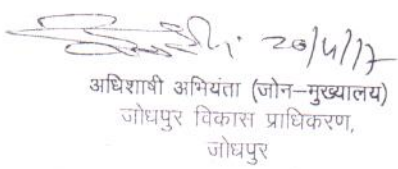 20/4/17
अधिशाषी अभियंता (जोन–मुख्यालय)
जोधपुर विकास प्राधिकरण,
जोधपुर